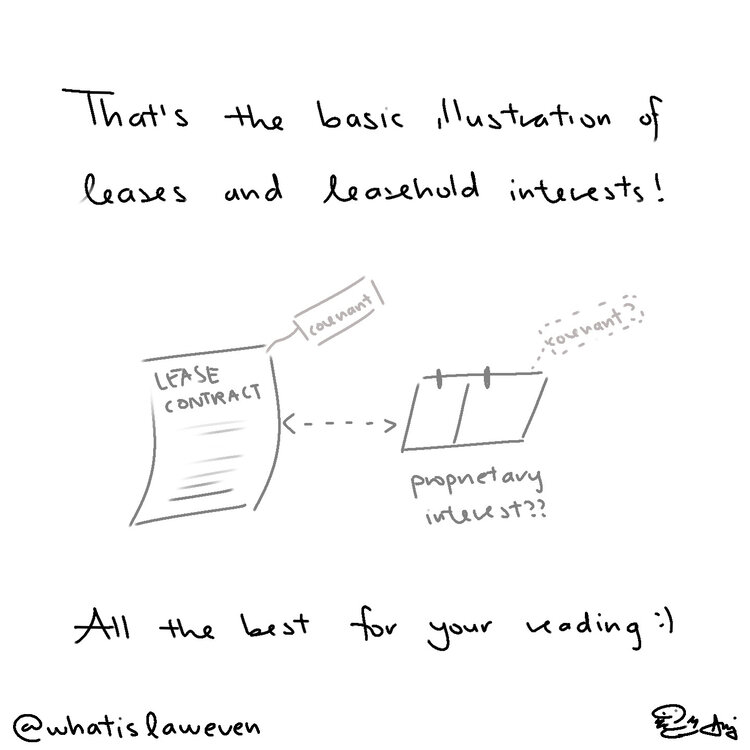 That's the basic illustration of
leases and leasehold interests!
covenant
covenant?
LEASE
CONTRACT
proprietary
interest??
All the best for your reading :)
@whatislaweven